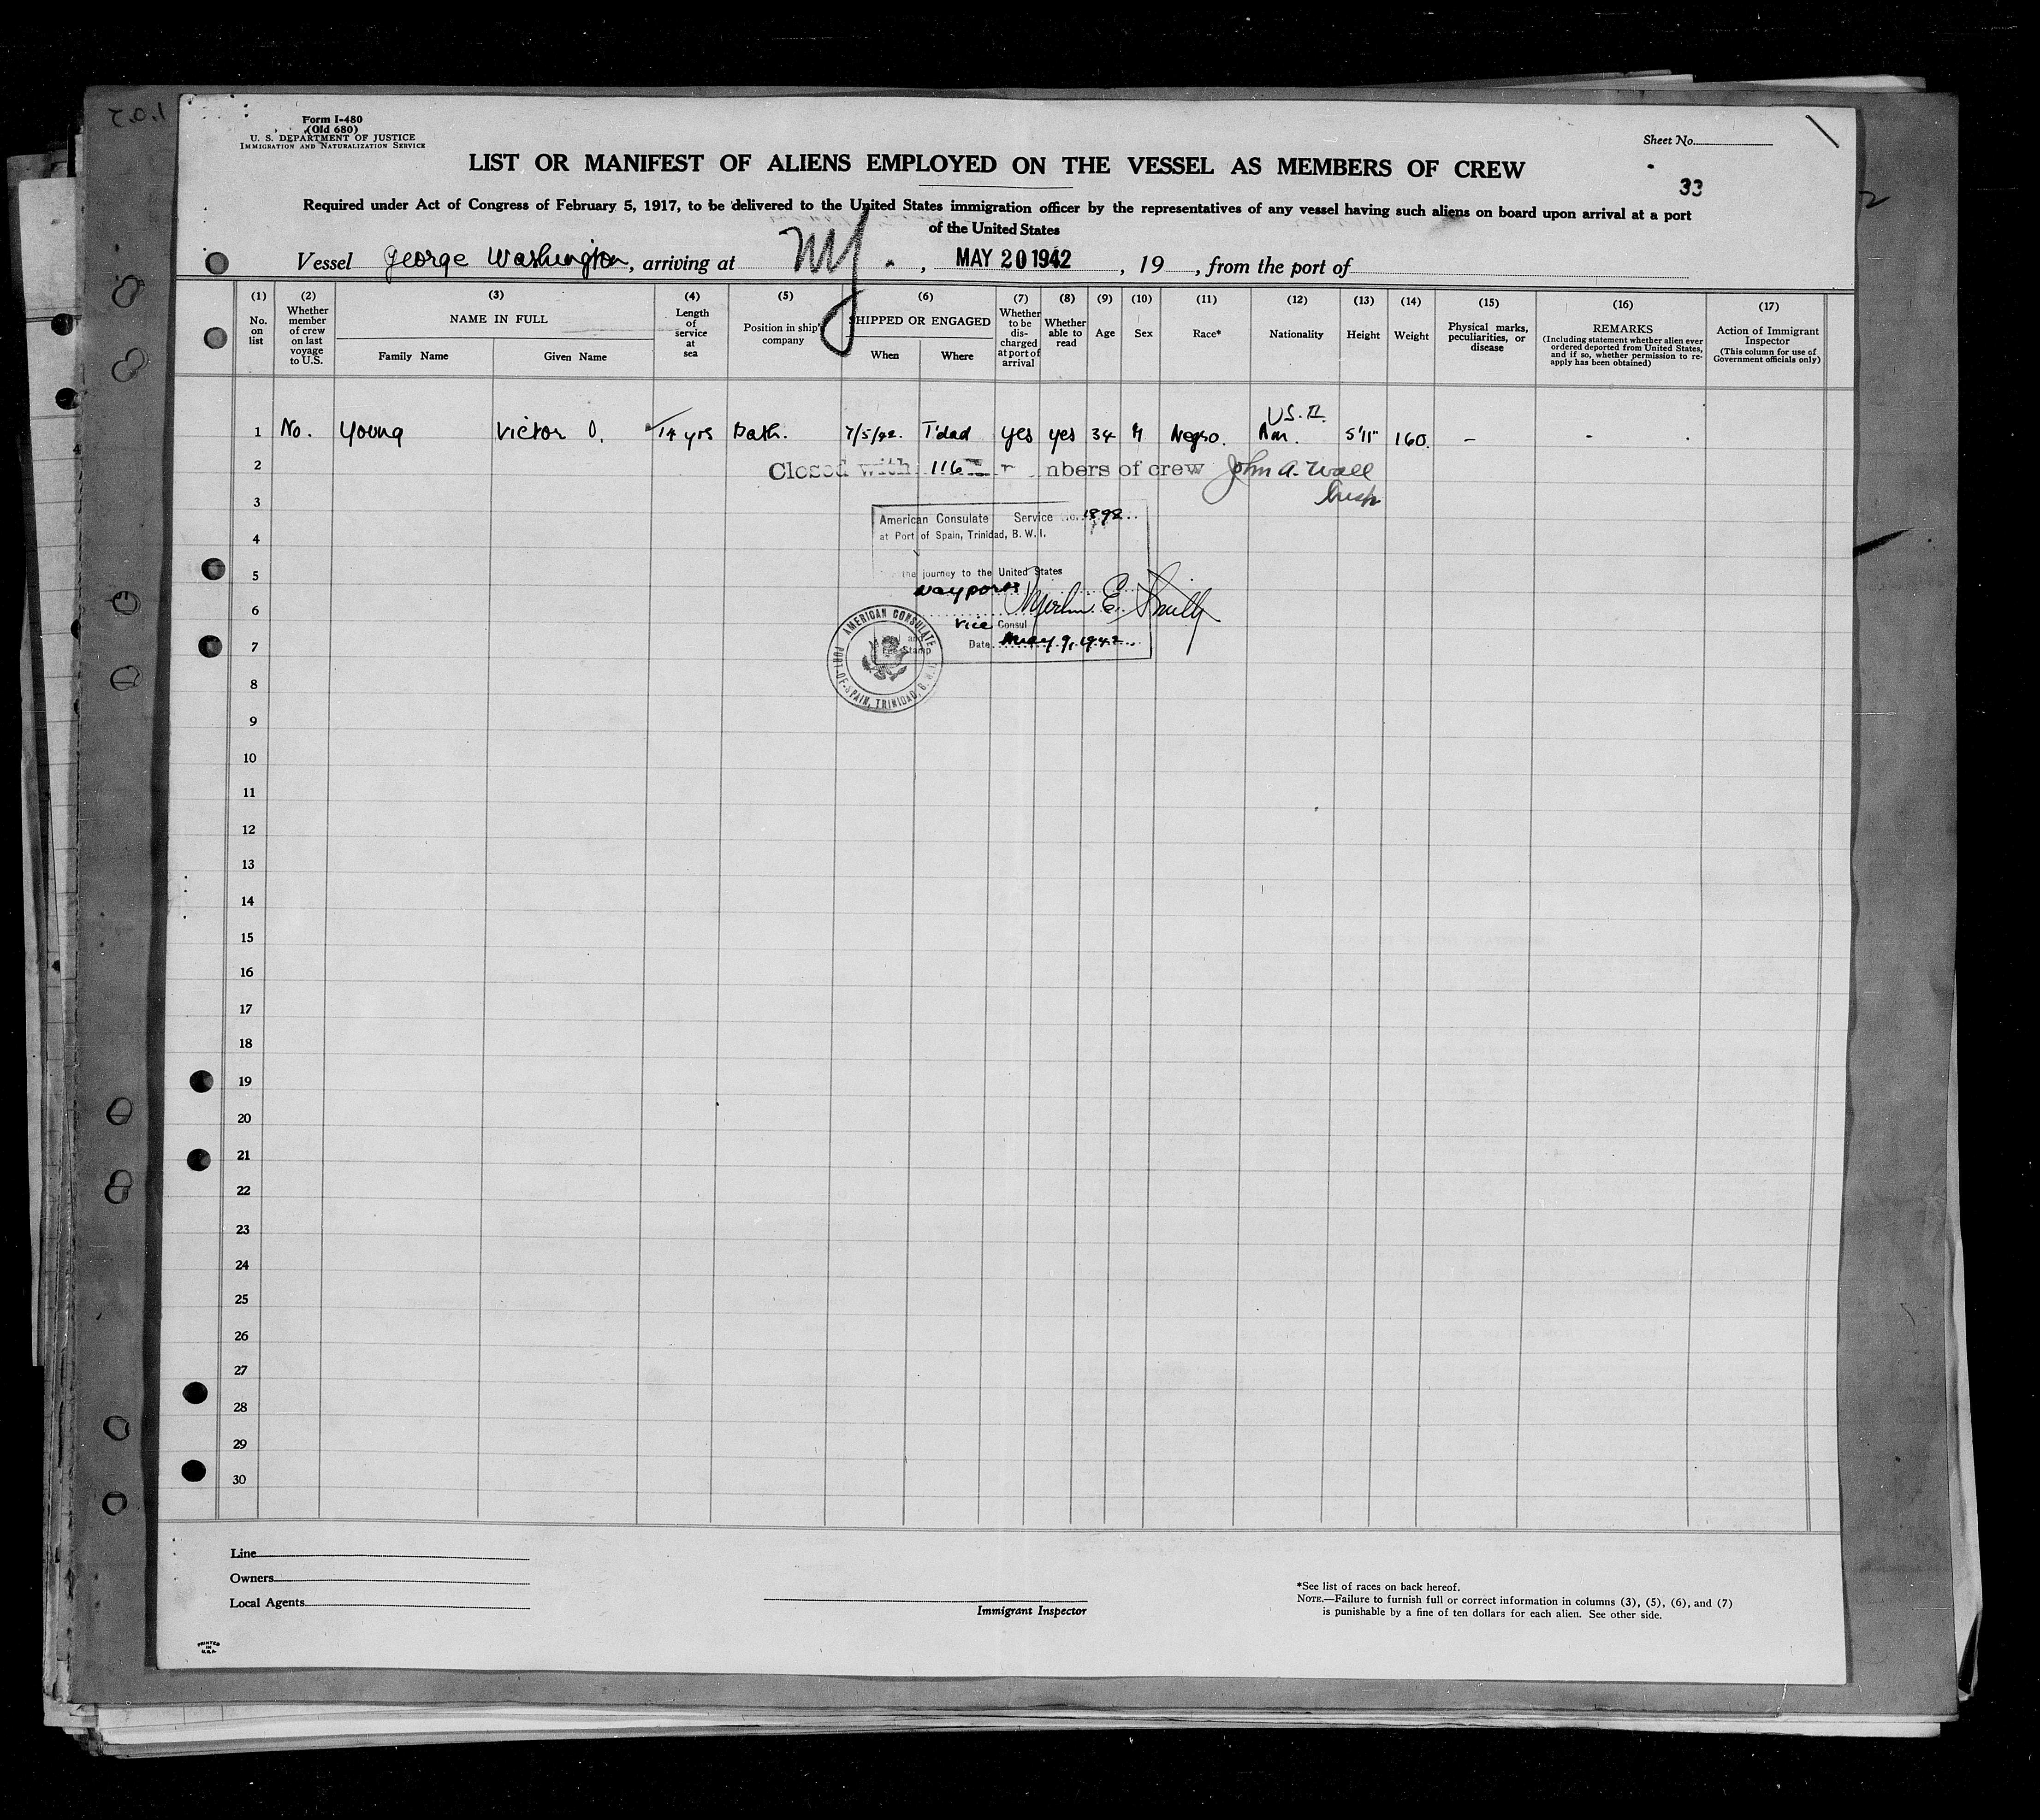 Form I-480
(Old 680)
U. S. DEPARTMENT OF JUSTICE
IMMIGRATION AND NATURALIZATION SERVICE
Sheet No.
LIST OR MANIFEST OF ALIENS EMPLOYED ON THE VESSEL AS MEMBERS OF CREW
33
Required under Act of Congress of February 5, 1917, to be delivered to the United States immigration officer by the representatives of any vessel having such aliens on board upon arrival at a port
of the United States
Vessel George Washington, arriving at NY. , MAY 20 1942 , 19 , from the port of
(1) No. on list
(2) Whether member of crew on last voyage to U.S.
(3) NAME IN FULL
Family Name Given Name
(4) Length of service at sea
(5) Position in ship's company
(6) SHIPPED OR ENGAGED
When Where
(7) Whether to be discharged at port of arrival
(8) Whether able to read
(9) Age
(10) Sex
(11) Race*
(12) Nationality
(13) Height
(14) Weight
(15) Physical marks, peculiarities, or disease
(16) REMARKS
(Including statement whether alien ever ordered deported from United States, and if so, whether permission to reapply has been obtained)
(17) Action of Immigrant Inspector
(This column for use of Government officials only)
U.S.
1 No. Young Victor O. 14 yrs 7/5/42. T'dad yes yes 34 M Negro. 5'11" 160. - - .
2 Closed with 116 members of crew John A. Wall
Insp
3
American Consulate Service No. 1898
4 at Port of Spain, Trinidad, B. W. I.
5 the journey to the United States
way ports
6 E. Smith
Vice Consul
7 Date May 9, 1942
Fee Stamp
AMERICAN CONSULATE
PORT-OF-SPAIN, TRINIDAD, B.W.I.
8
9
10
11
12
13
14
15
16
17
18
19
20
21
22
23
24
25
26
27
28
29
30
Line
Owners
Local Agents
Immigrant Inspector
*See list of races on back hereof.
NOTE.—Failure to furnish full or correct information in columns (3), (5), (6), and (7)
is punishable by a fine of ten dollars for each alien. See other side.
PRINTED
IN
U.S.A.